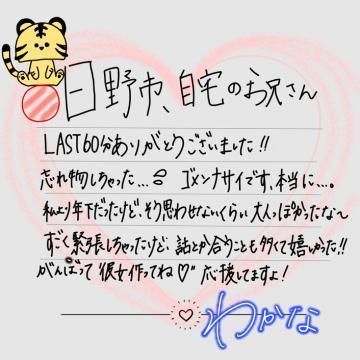 日野市、自宅のお兄さん
LAST60分ありがとうございました!!
忘れ物しちゃった...。ゴメンナサイです、本当に...。
私より年下だったけど、そう思わせないくらい大人っぽかったな〜
すごく緊張しちゃったけど、話とか合うことも多くて嬉しかった!!
がんばって"彼女作ってね♡"応援してますよ!
わかな